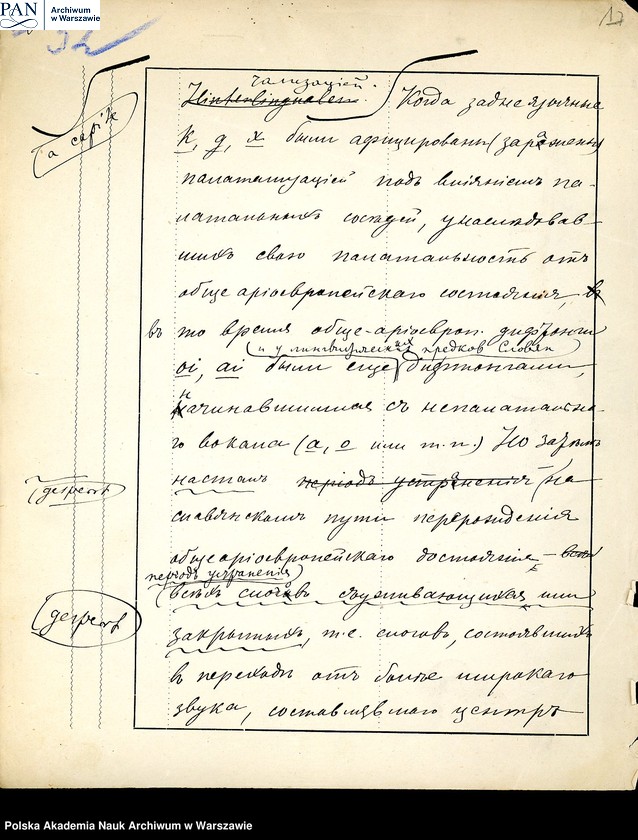 PAN
Archiwum
w Warszawie
17
a capite
чализаціей.
Hinterlingualen. Когда заднеязычные
к, g, х были афицированы (заражены)
палатализаціей подъ вліяніемъ па-
латальныхъ соседей, унаследовав-
шихъ свою палатальность отъ
обще аріоевропейскаго состоянія,
въ то время обще-аріоевроп. дифтонги
(и у лингвистическихъ предков Словян)
oi, ai были еще дифтонгами,
начинавшимися съ непалатально-
го вокала (a, o или т.п.) Но затемъ
насталъ періодъ устраненія (на
desperat
славянскомъ пути перерожденія
общеаріоевропейскаго достоянія –
періодъ устраненія)
(всехъ слоговъ суживающихся или
desperat
закрытыхъ, т.е. слоговъ, состоявшихъ
в переходе отъ более широкаго
звука, составлявшаго центръ
Polska Akademia Nauk Archiwum w Warszawie